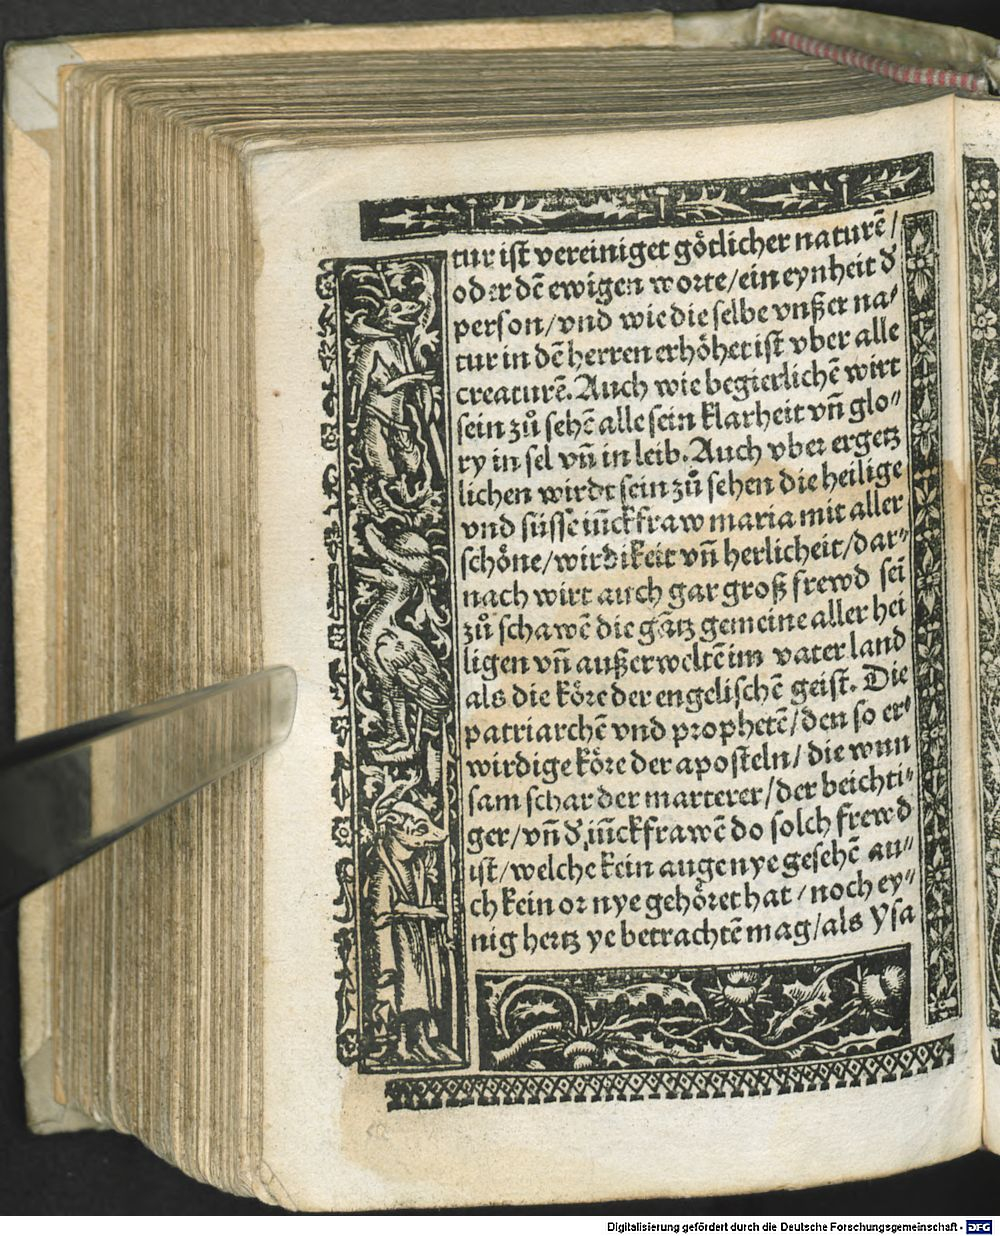 tur ist vereiniget götlicher naturē/
oder dē ewigen worte/ein eynheit đ
person/vnd wie die selbe vnßer na⸗
tur in dē herren erhöhet ist vber alle
creaturē. Auch wie begierlichē wirt
sein zů sehē alle sein klarheit vn̄ glo⸗
ry in sel vn̄ in leib. Auch vber ergetz
lichen wirdt sein zů sehen die heilige
vnd süsse iūckfraw maria mit aller
schöne/wirdikeit vn̄ herlicheit/dar⸗
nach wirt auch gar groß frewd sei
zů schawē die gātz gemeine aller hei
ligen vn̄ außerweltē im vater land
als die köre der engelischē geist. Die
patriarchē vnd prophetē/den so er⸗
wirdige köre der aposteln/die wun
sam schar der marterer/der beichti⸗
ger/vn̄ đ iūckfrawē do solch frewd
ist/welche kein auge nye gesehē au⸗
ch kein or nye gehöret hat/noch ey⸗
nig hertz ye betrachtē mag/als Ysa
Digitalisierung gefördert durch die Deutsche Forschungsgemeinschaft - DFG